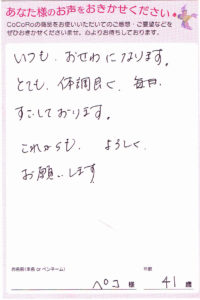 あなた様のお声をおきかせください
CoCoRoの商品をお使いいただいてのご感想・ご要望などを
ぜひおきかせくださいませ。心よりお待ちしております。
いつも、おせわになります。
とても、体調良く、毎日、
すごしております。
これからも、よろしく、
お願いします
お名前(本名 or ペンネーム) 年齢
ペコ 様 41 歳